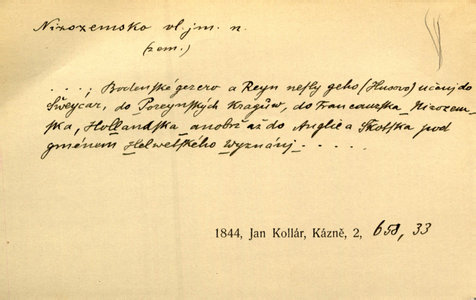 Nizozemsko vl. jm. n.
(zem.)
. . . .; Bodenské gezero a Reyn nesly geho (Husovo) učenj do
Šweycar, do Poreynských Kragůw, do Francauska, Nizozem-
ska, Hollandska anobrž až do Anglie a Skotska pod
gménem Helwetského wyznánj . . . . .
1844, Jan Kollár, Kázně, 2, 658, 33